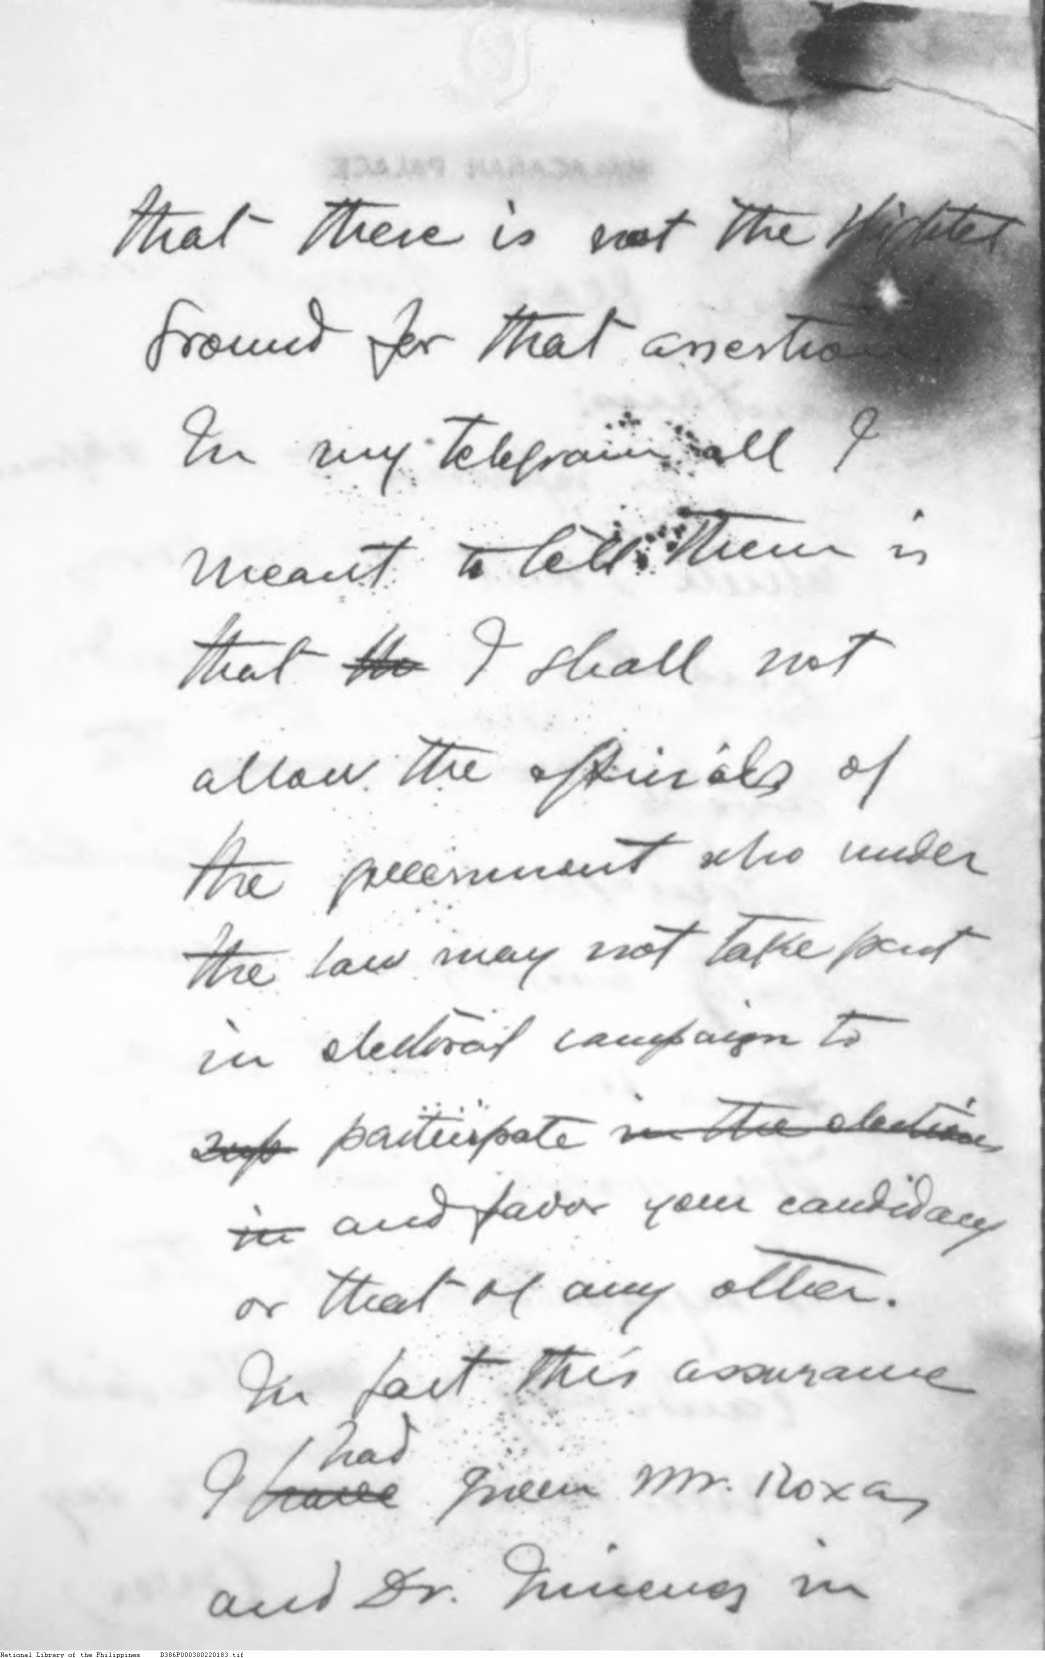 that there is not the slightest
ground for that assertion.
In my telegram all I
meant to tell them is
that the I shall not
allow the officials of
the government who under
the law may not take part
in electoral campaign to
participate in the elections
in and favor your candidacy
or that of any other.
In fact this assurance
had
I have given Mr. Roxas
and Dr. in
National Library of the Philippines B386P000380220183.tif